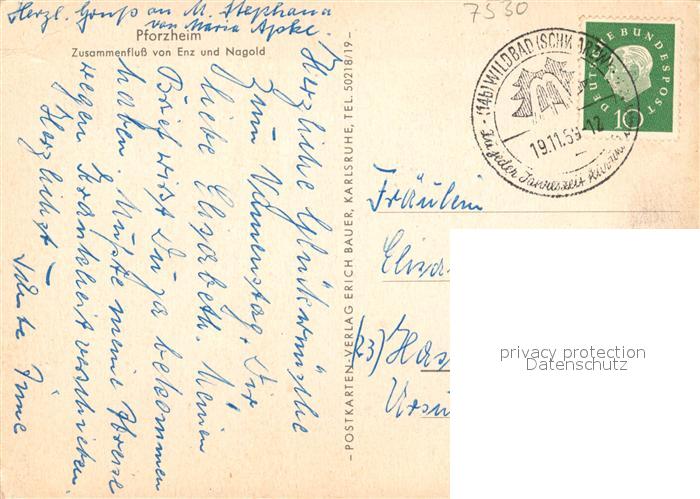 Herzl. Gruß an M. Stephana
von Maria Apke.
7530
Pforzheim
Zusammenfluß von Enz und Nagold
Herzliche Glückwünsche
zum Namenstag, Dir
liebe Elisabeth. Meinen
Brief wirst Du ja bekommen
haben. Mußte meine Abreise
wegen Krankheit verschieben.
Herzlichst
Tante Fine
– POSTKARTEN-VERLAG ERICH BAUER, KARLSRUHE, TEL. 50218/19 –
(14b) WILDBAD (SCHWARZW)
19.11.59-12
Zu jeder Jahreszeit
DEUTSCHE BUNDESPOST
10
Fräulein
Elisa
(23) Has
Ursu
privacy protection
Datenschutz